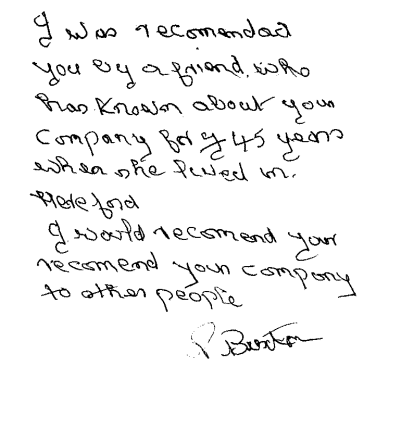 I was recomended
you by a friend, who
has known about your
company for y 45 years
when she lived in.
Hereford
I would recomend your
recomend your company
to other people
P Buxton